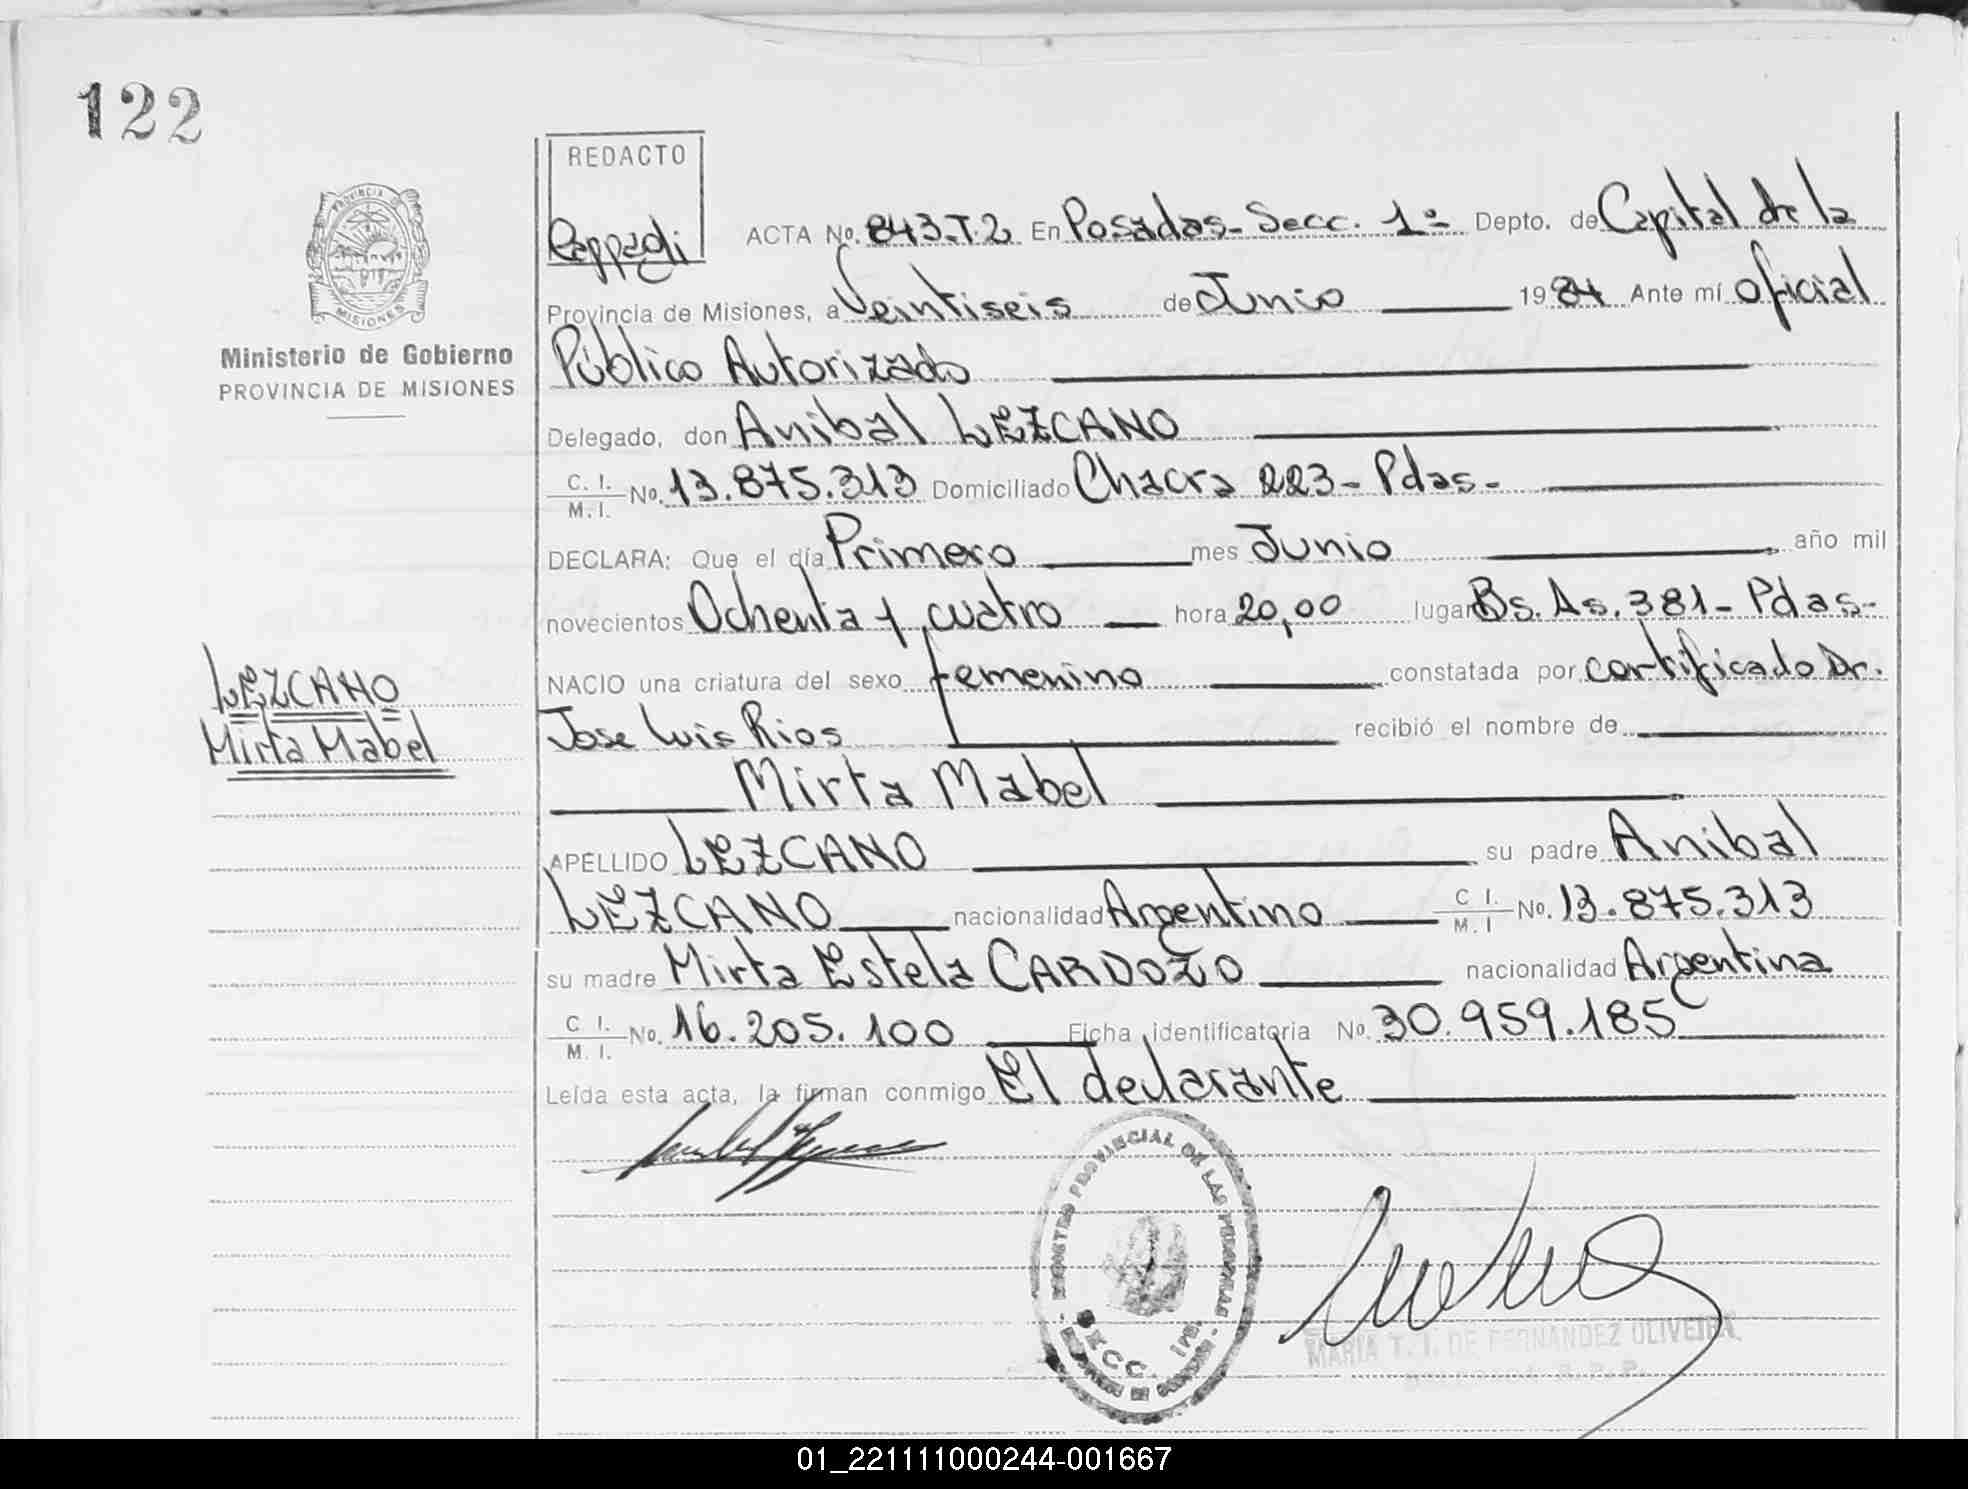 122
PROVINCIA
MISIONES
Ministerio de Gobierno
PROVINCIA DE MISIONES
LEZCANO
Mirta Mabel
REDACTO
ACTA No. 843-T.2 En Posadas- Secc. 1ª Depto. de Capital de la
Provincia de Misiones, a Veintiseis de Junio 1984 Ante mí Oficial
Público Autorizado
Delegado, don Anibal LEZCANO
C. I. / M. I. No. 13.875.313 Domiciliado Chacra 223- Pdas-
DECLARA: Que el día Primero mes Junio año mil
novecientos Ochenta y cuatro hora 20,00 lugar Bs. As. 381- Pdas-
NACIO una criatura del sexo femenino constatada por certificado Dr.
Jose Luis Rios recibió el nombre de
Mirta Mabel
APELLIDO LEZCANO su padre Anibal
LEZCANO nacionalidad Argentino C I. / M. I No. 13.875.313
su madre Mirta Estela CARDOZO nacionalidad Argentina
C I. / M. I. No. 16.205.100 Ficha identificatoria No. 30.959.185
Leída esta acta, la firman conmigo El declarante
REGISTRO PROVINCIAL DE LAS PERSONAS
SECC. 1ra.
MARIA T. I. DE FERNANDEZ OLIVEIRA
R.P.P.
01_221111000244-001667